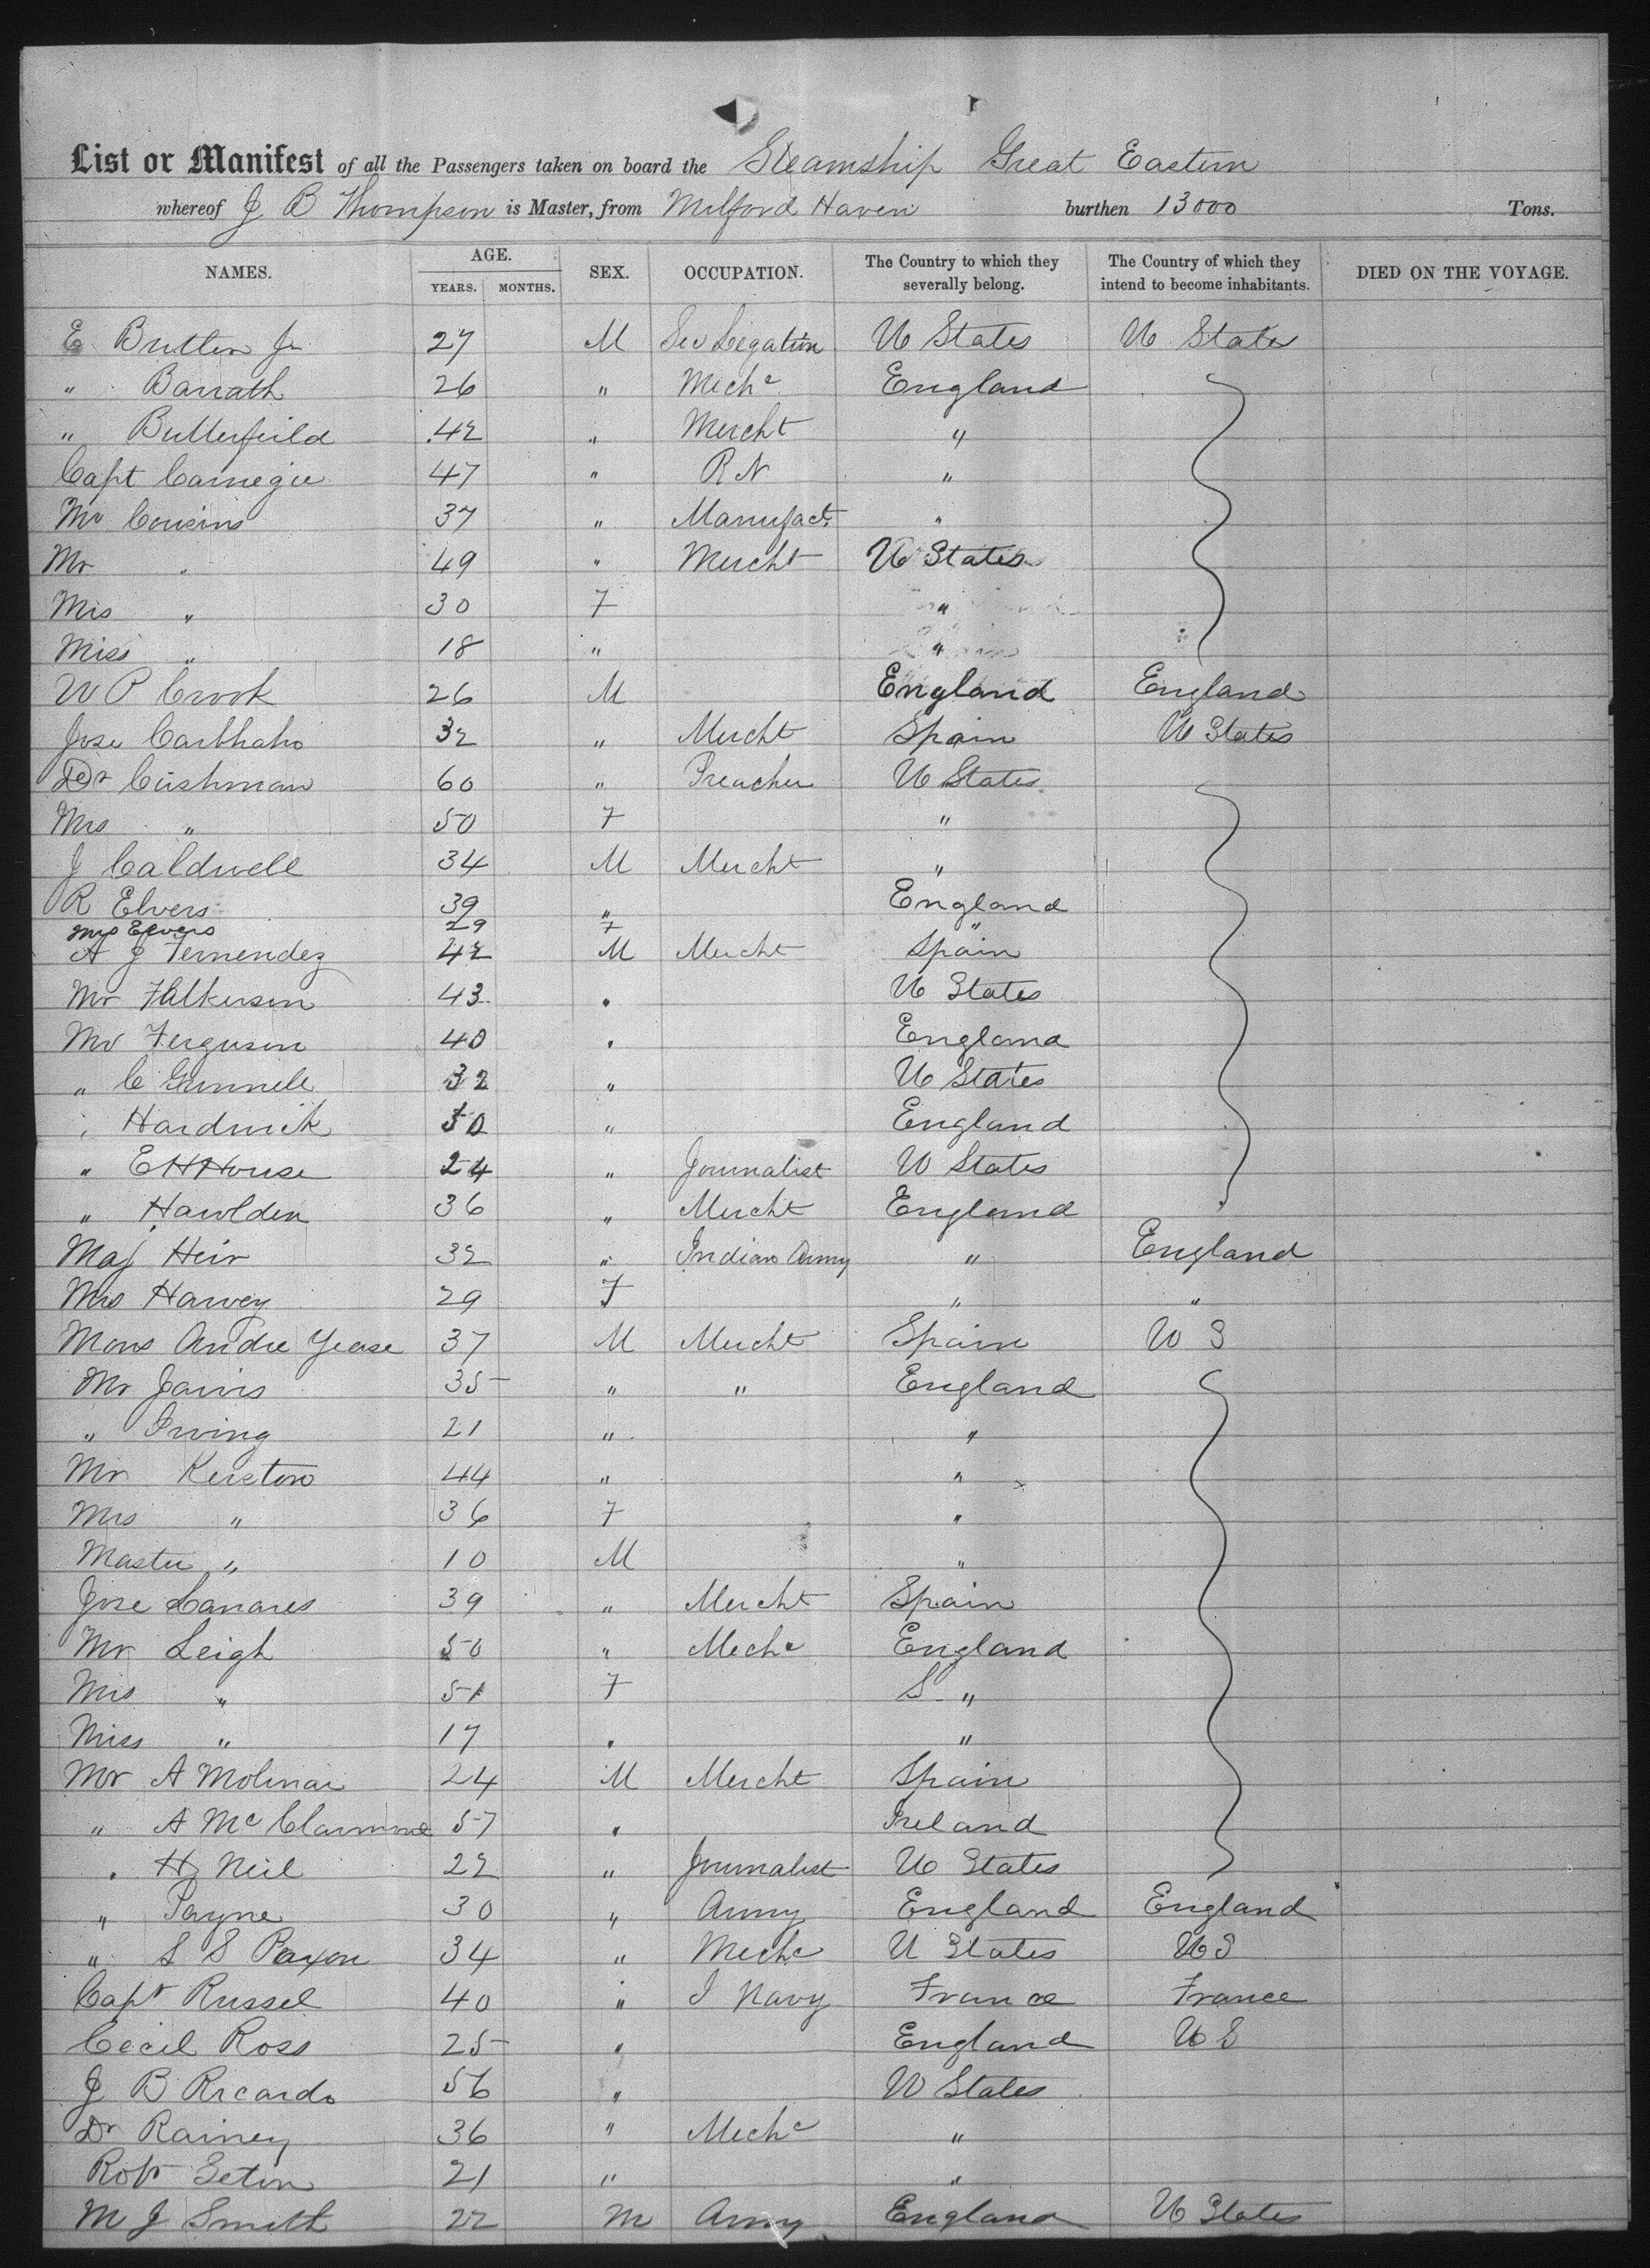 List or Manifest of all the Passengers taken on board the Steamship Great Eastern
whereof J B Thompson is Master, from Milford Haven burthen 13000 Tons.
NAMES. AGE. SEX. OCCUPATION. The Country to which they severally belong. The Country of which they intend to become inhabitants. DIED ON THE VOYAGE.
YEARS. MONTHS.
E Butler Jr 27 M Sec Legation U States U States
" Barrath 26 " Mechc England
" Butterfeild 42 " Mercht "
Capt Carnegie 47 " R N "
Mr Cousins 37 " Manufactr "
Mr " 49 " Mercht U States
Mrs " 30 F "
Miss " 18 " "
W P Crook 26 M England England
Jose 32 " Mercht Spain U States
Dr Cushman 60 " Preacher U States
Mrs " 50 F "
J Caldwell 34 M Mercht "
R Elvers 39 " England
Mrs Elvers 29 F "
A J Fernendez 42 M Mercht Spain
Mr Fulkerson 43 " U States
Mr Ferguson 40 " England
" C Gunnell 32 " U States
" Hardwick 50 " England
" E H House 24 " Journalist U States
" Hawlden 36 " Mercht England
Maj Heir 32 " Indian Army " England
Mrs Harvey 29 F " "
Mons Andre Yease 37 M Mercht Spain U S
Mr Jarvis 35 " " England
" Irving 21 " "
Mr Kerston 44 " "
Mrs " 36 F "
Master " 10 M "
Jose Lanares 39 " Mercht Spain
Mr Leigh 50 " Mechc England
Mrs " 51 F S "
Miss " 17 " "
Mr A Molinar 24 M Mercht Spain
" A 57 " Ireland
" H Neil 22 " Journalist U States
" Payne 30 " Army England England
" S S Paxon 34 " Mechc U States U S
Capt Russel 40 " I Navy France France
Cecil Ross 25 " England U S
J B Ricardo 56 " U States
Dr Rainey 36 " Mechc "
Robt Seton 21 " "
M J Smith 22 M Army England U States